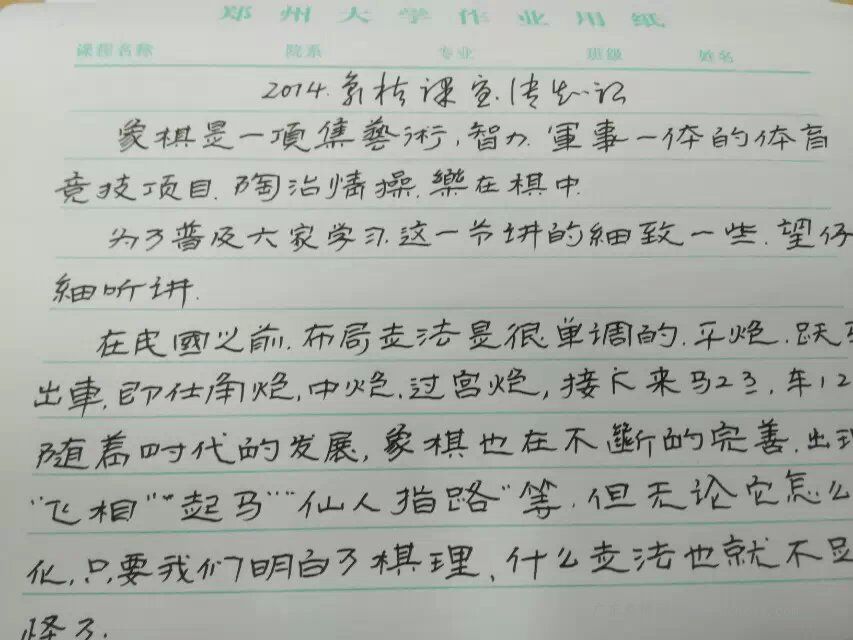 郑州大学作业用纸
课程名称 院系 专业 班级 姓名
2014.象棋课宣传知识
象棋是一項集藝術,智力.軍事一体的体育
竞技项目.陶冶情操.樂在棋中.
为了普及大家学习.这一节讲的細致一些.望仔
細听讲.
在民國以前.布局走法是很单调的.平炮.跃马
出車.即仕角炮,中炮.过宫炮,接下来马23,车12
随着时代的发展,象棋也在不斷的完善.出现
"飞相""起马""仙人指路"等.但无论它怎么
化,只要我们明白了棋理、什么走法也就不足
怪了.